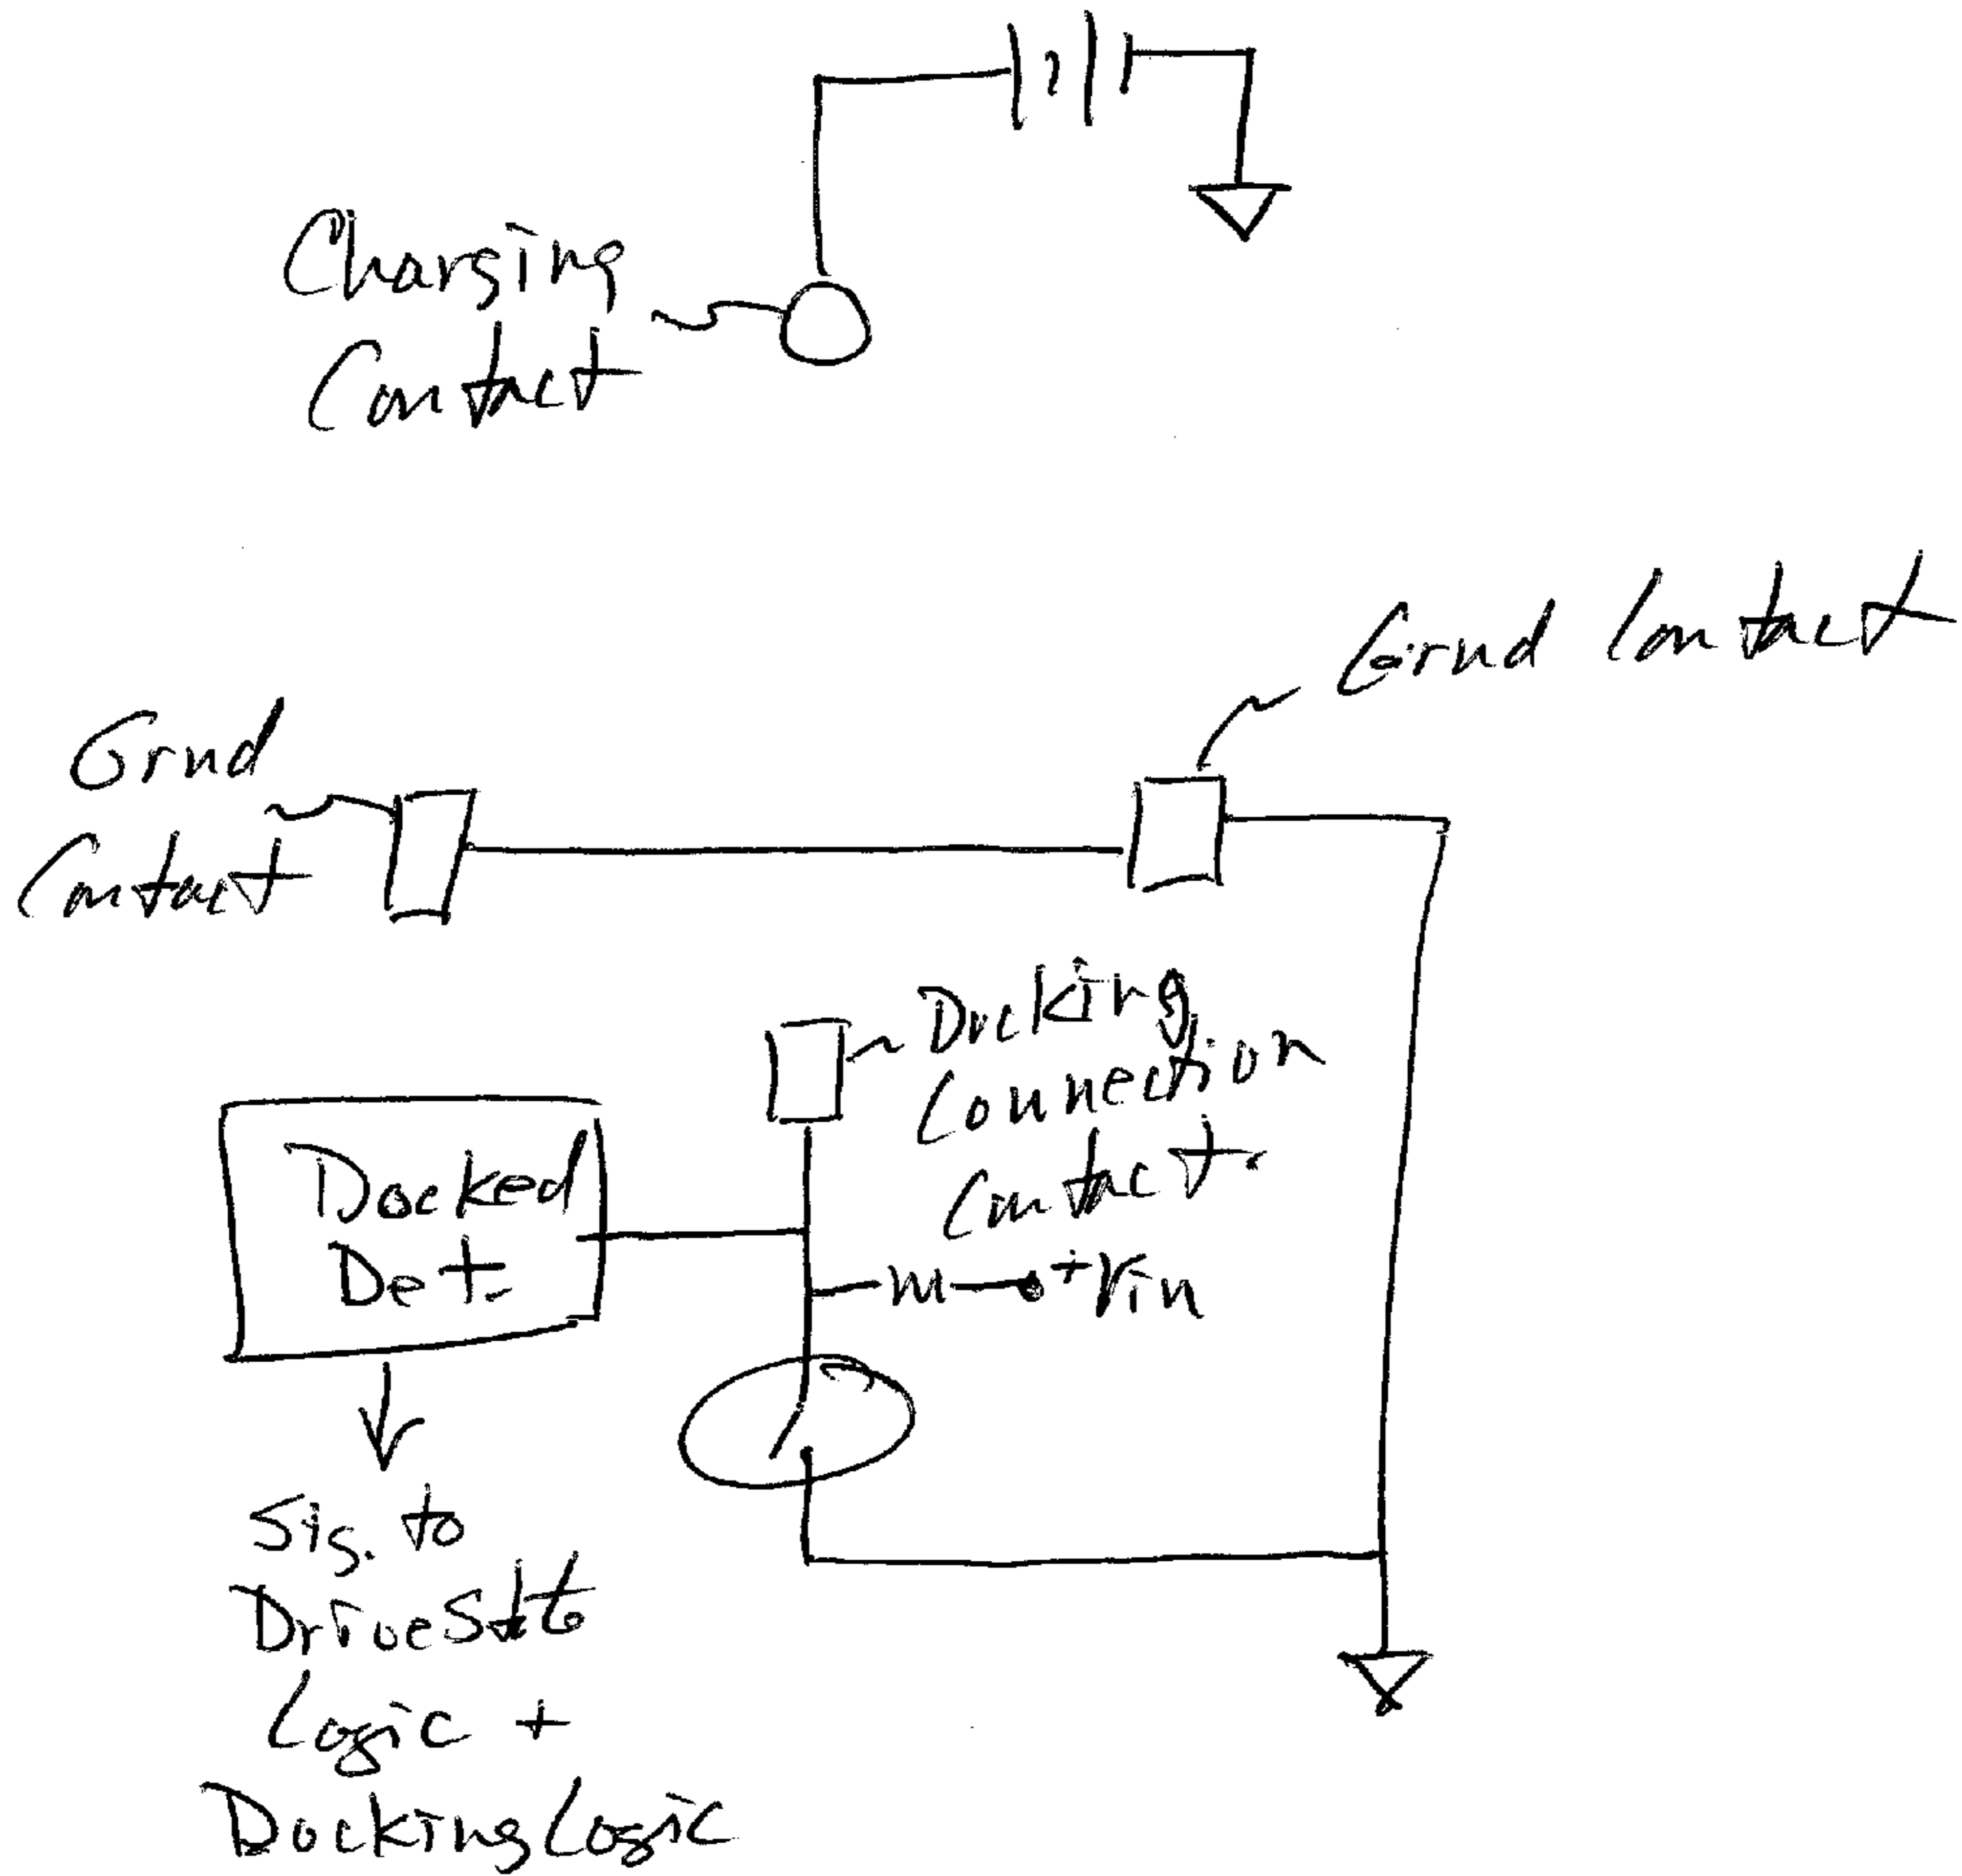 Charging
Contact
Grnd Contact
Grnd
Contact
Docking
Connection
Contact.
Docked
Det.
+Vin
Sig. to
Drive
Logic +
Docking Logic